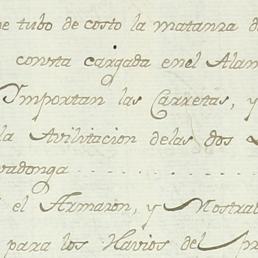 e tubo de costo la matanza d
consta cargada en el Alam
Importan las Carretas, y
la Avilitacion delas dos
vadonga
el Armazon, y Mostra
para los Navios del